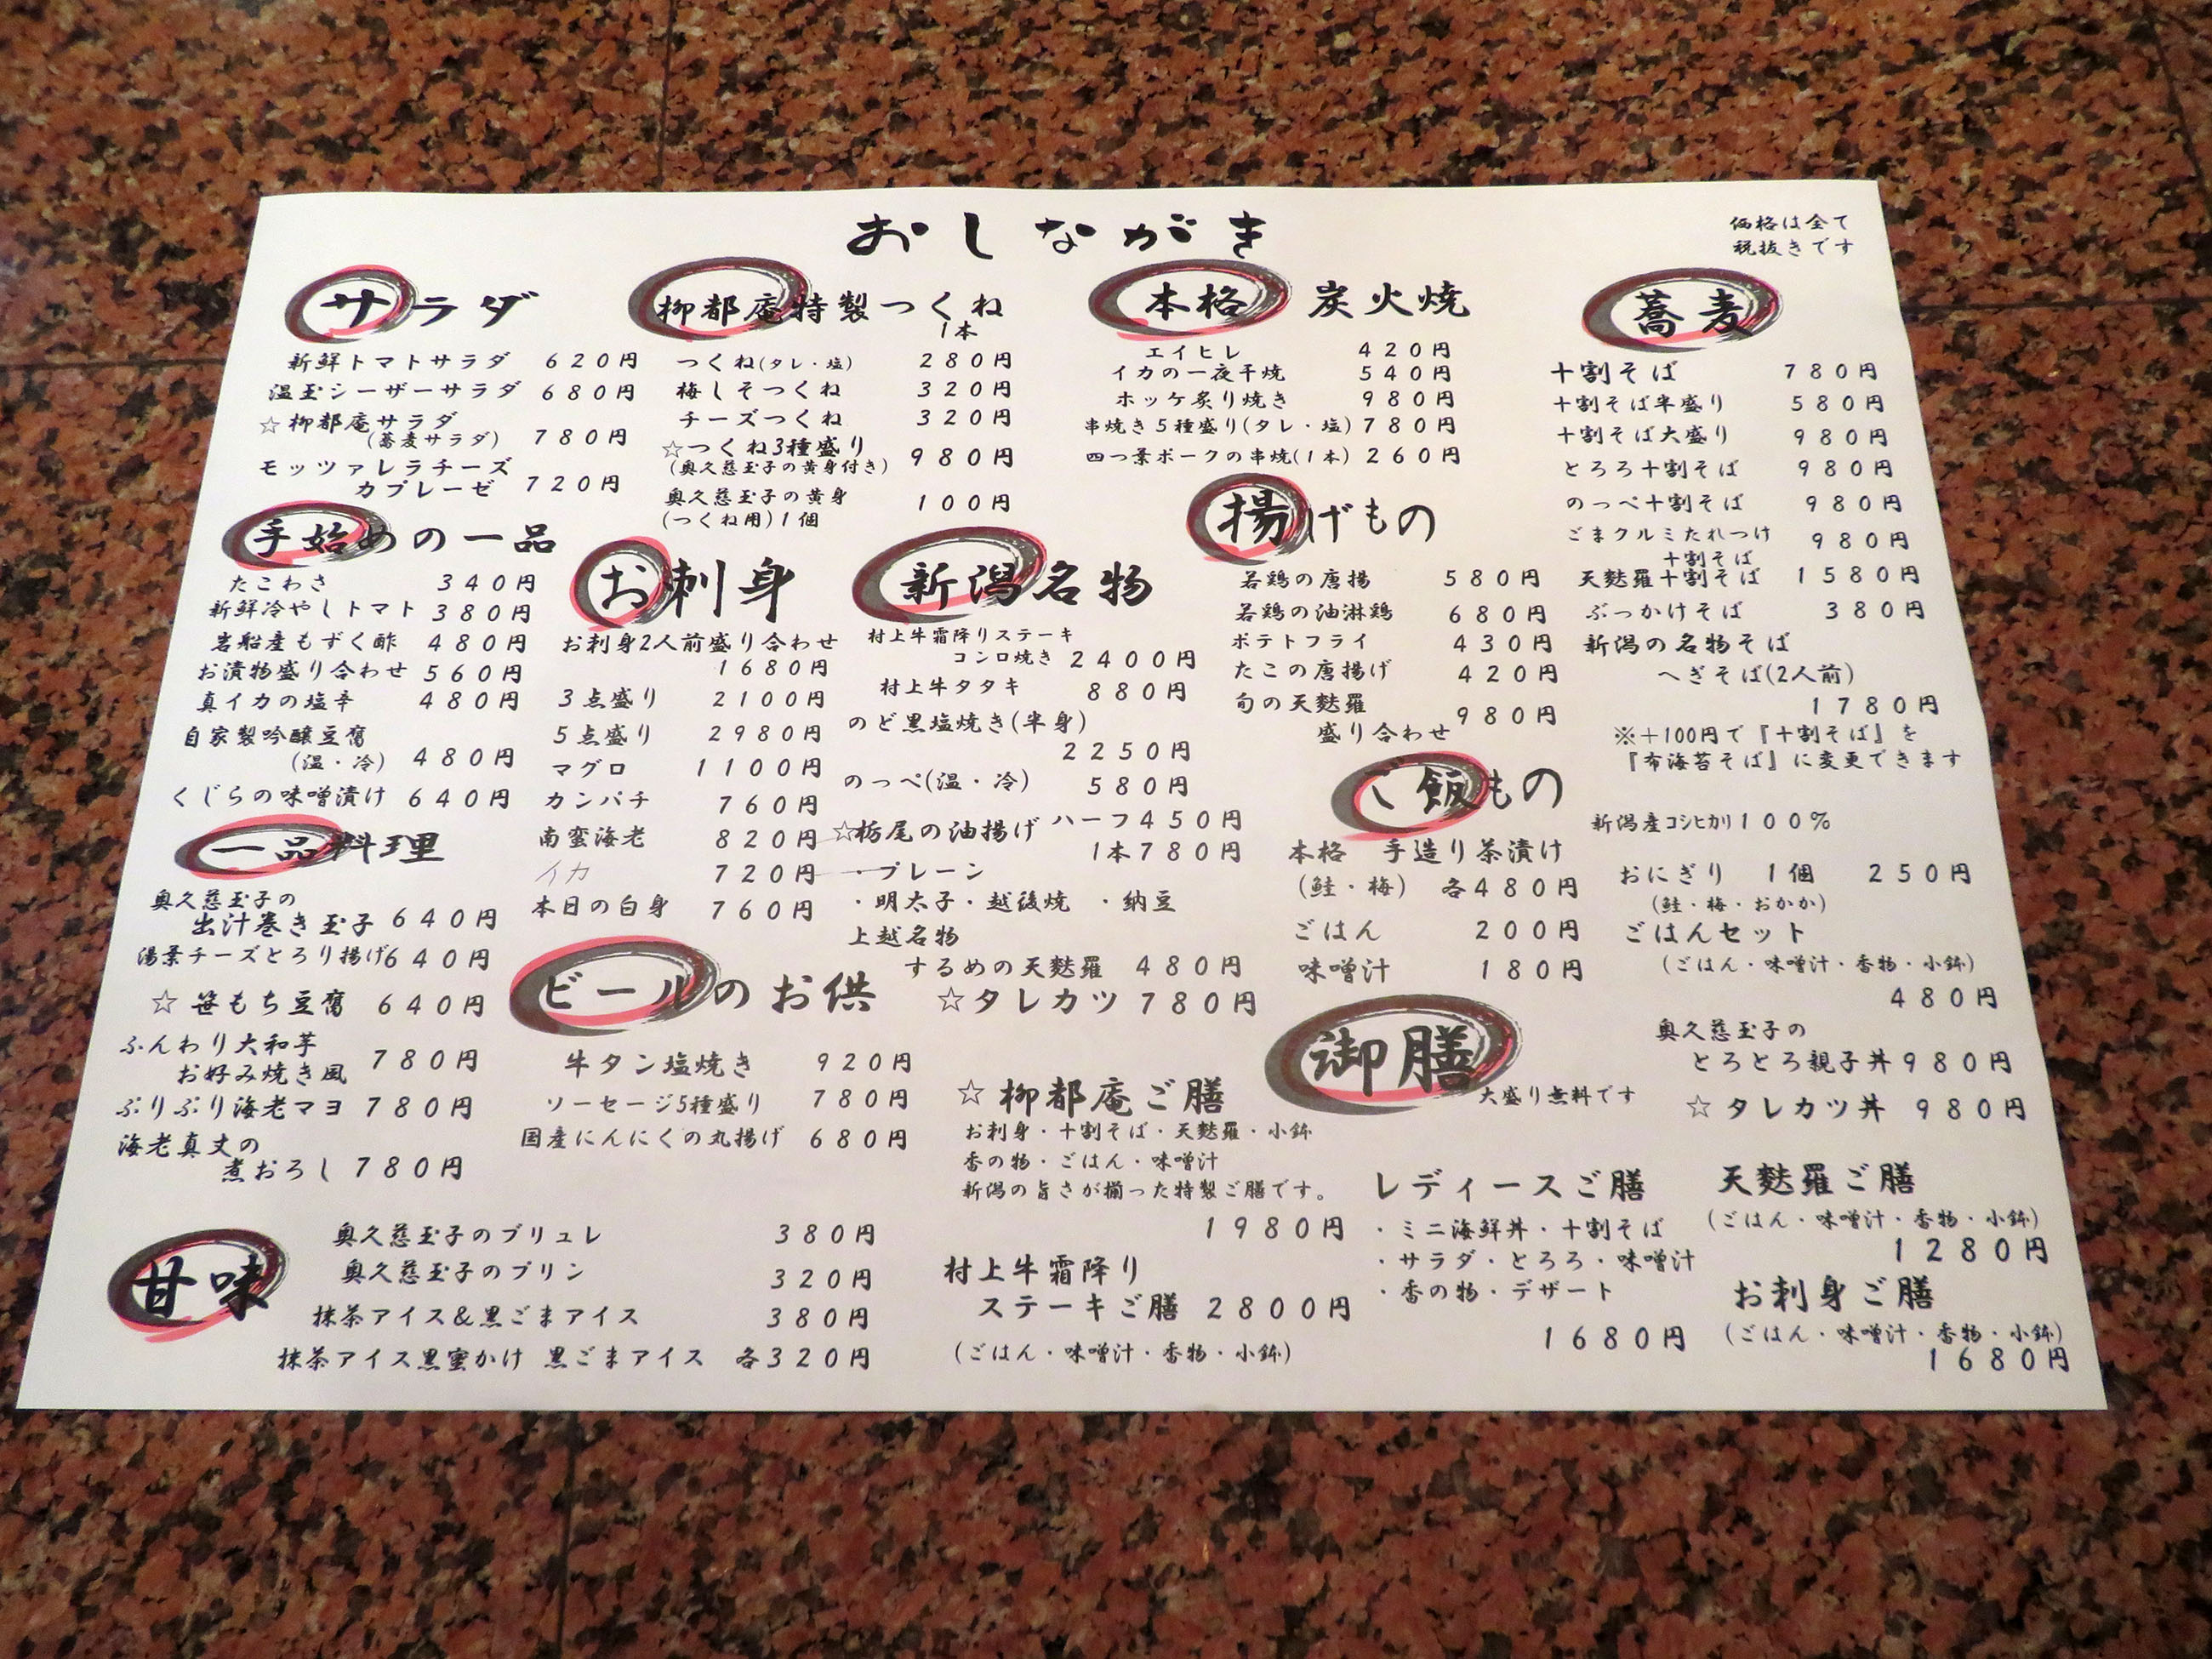 おしながき
価格は全て
税抜きです
サラダ
新鮮トマトサラダ 620円
温玉シーザーサラダ 680円
☆柳都庵サラダ
(蕎麦サラダ) 780円
モッツァレラチーズ
カプレーゼ 720円
手始めの一品
たこわさ 340円
新鮮冷やしトマト 380円
岩船産もずく酢 480円
お漬物盛り合わせ 560円
真イカの塩辛 480円
自家製吟醸豆腐
(温・冷) 480円
くじらの味噌漬け 640円
一品料理
奥久慈玉子の
出汁巻き玉子 640円
湯葉チーズとろり揚げ640円
☆ 笹もち豆腐 640円
ふんわり大和芋
お好み焼き風 780円
ぷりぷり海老マヨ 780円
海老真丈の
煮おろし 780円
甘味
奥久慈玉子のブリュレ 380円
奥久慈玉子のプリン 320円
抹茶アイス&黒ごまアイス 380円
抹茶アイス黒蜜かけ 黒ごまアイス 各320円
柳都庵特製つくね
1本
つくね(タレ・塩) 280円
梅しそつくね 320円
チーズつくね 320円
☆つくね3種盛り
(奥久慈玉子の黄身付き) 980円
奥久慈玉子の黄身
(つくね用)1個 100円
お刺身
お刺身2人前盛り合わせ
1680円
3点盛り 2100円
5点盛り 2980円
マグロ 1100円
カンパチ 760円
南蛮海老 820円
イカ 720円
本日の白身 760円
ビールのお供
牛タン塩焼き 920円
ソーセージ5種盛り 780円
国産にんにくの丸揚げ 680円
新潟名物
村上牛霜降りステーキ
コンロ焼き 2400円
村上牛タタキ 880円
のど黒塩焼き(半身)
2250円
のっぺ(温・冷) 580円
☆栃尾の油揚げ ハーフ450円
1本780円
・プレーン
・明太子・越後焼 ・納豆
上越名物
するめの天麩羅 480円
☆タレカツ 780円
本格 炭火焼
エイヒレ 420円
イカの一夜干焼 540円
ホッケ炙り焼き 980円
串焼き5種盛り(タレ・塩) 780円
四つ葉ポークの串焼(1本) 260円
揚げもの
若鶏の唐揚 580円
若鶏の油淋鶏 680円
ポテトフライ 430円
たこの唐揚げ 420円
旬の天麩羅
盛り合わせ 980円
ご飯もの
本格 手造り茶漬け
(鮭・梅) 各480円
ごはん 200円
味噌汁 180円
新潟産コシヒカリ100%
おにぎり 1個 250円
(鮭・梅・おかか)
ごはんセット
(ごはん・味噌汁・香物・小鉢)
480円
奥久慈玉子の
とろとろ親子丼980円
☆タレカツ丼 980円
蕎麦
十割そば 780円
十割そば半盛り 580円
十割そば大盛り 980円
とろろ十割そば 980円
のっぺ十割そば 980円
ごまクルミたれつけ
十割そば 980円
天麩羅十割そば 1580円
ぶっかけそば 380円
新潟の名物そば
へぎそば(2人前)
1780円
※+100円で『十割そば』を
『布海苔そば』に変更できます
御膳
大盛り無料です
☆ 柳都庵ご膳
お刺身・十割そば・天麩羅・小鉢
香の物・ごはん・味噌汁
新潟の旨さが揃った特製ご膳です。
1980円
村上牛霜降り
ステーキご膳 2800円
(ごはん・味噌汁・香物・小鉢)
レディースご膳
・ミニ海鮮丼・十割そば
・サラダ・とろろ・味噌汁
・香の物・デザート
1680円
天麩羅ご膳
(ごはん・味噌汁・香物・小鉢)
1280円
お刺身ご膳
(ごはん・味噌汁・香物・小鉢)
1680円